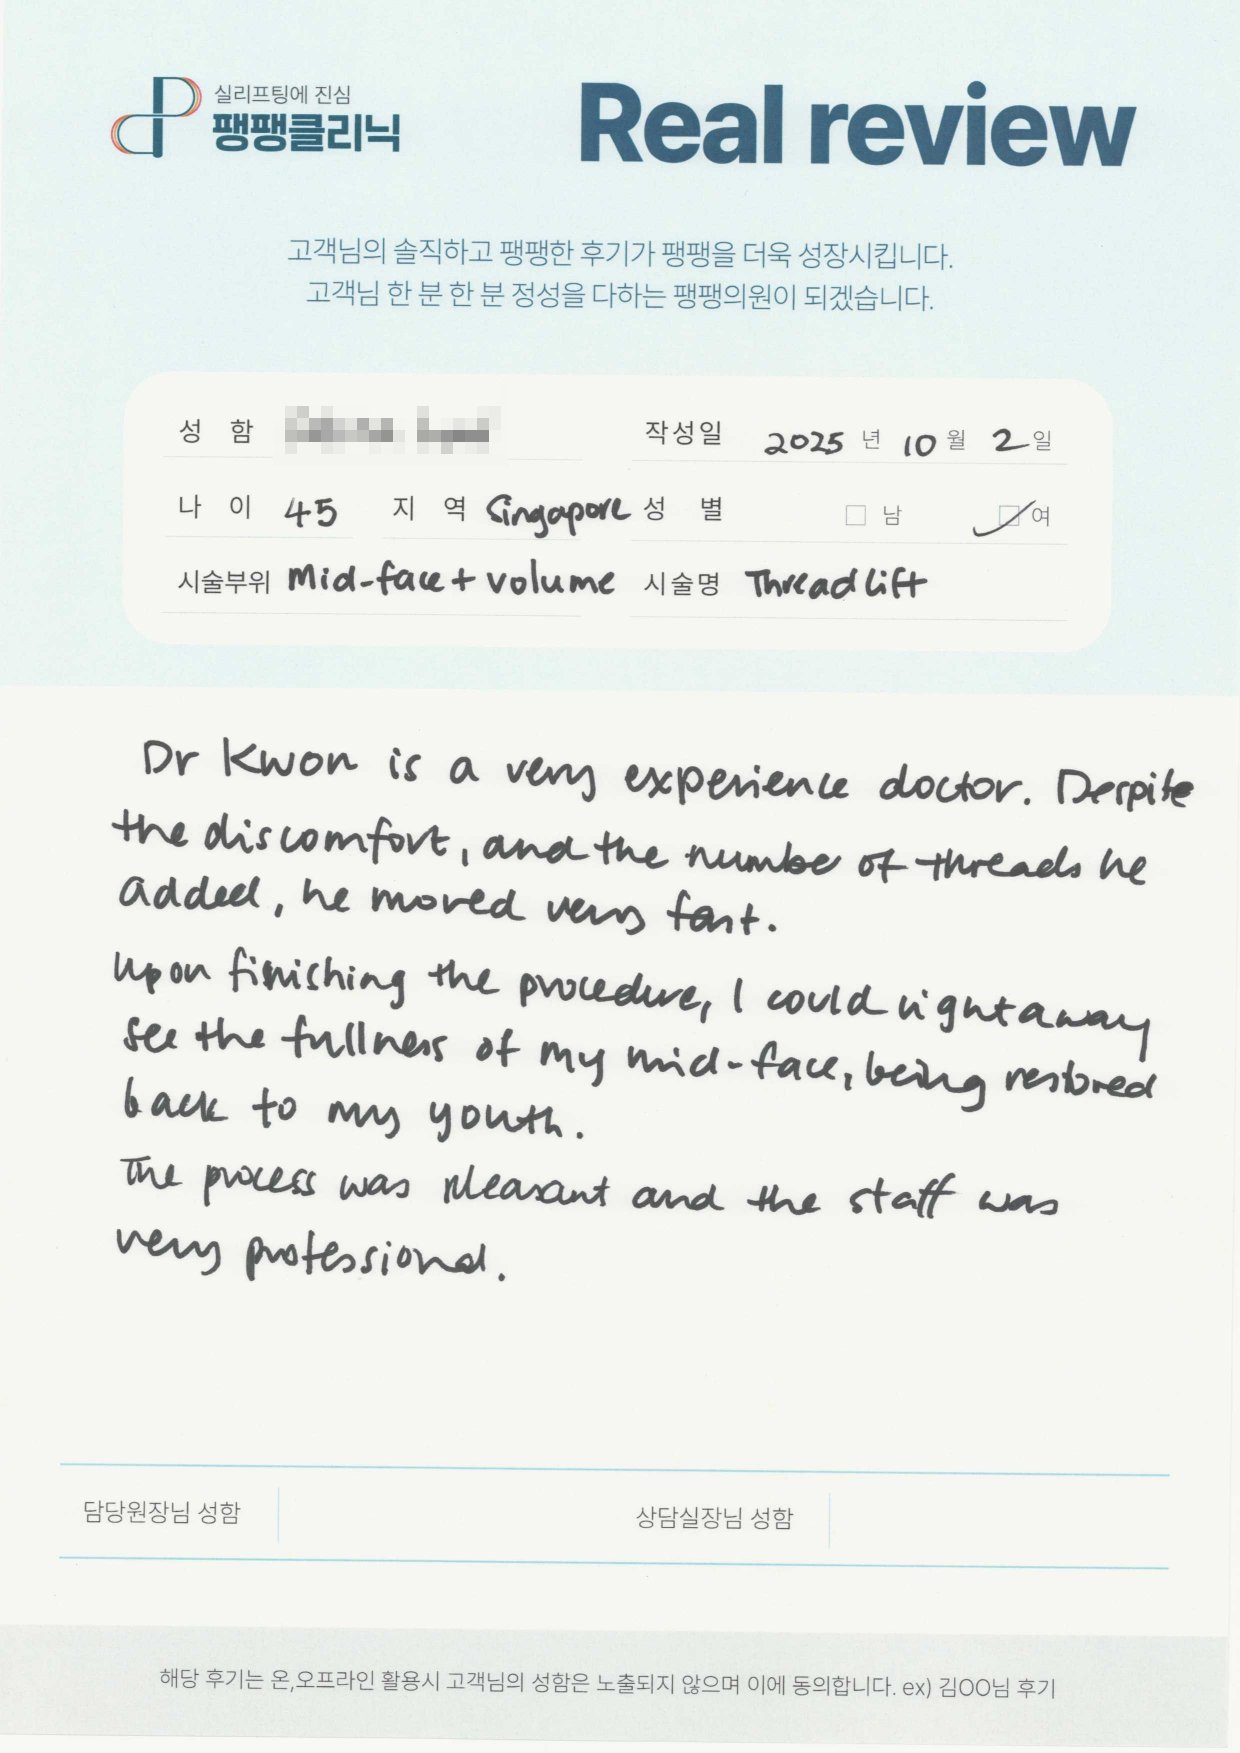 실리프팅에 진심
팽팽클리닉
Real review
고객님의 솔직하고 팽팽한 후기가 팽팽을 더욱 성장시킵니다.
고객님 한 분 한 분 정성을 다하는 팽팽의원이 되겠습니다.
성 함 작성일 2025 년 10 월 2 일
나 이 45 지 역 Singapore 성 별 남 여
시술부위 Mid-face + volume 시술명 Thread Lift
Dr Kwon is a very experience doctor. Despite
the discomfort, and the number of threads he
added, he moved very fast.
Upon finishing the procedure, I could right away
see the fullness of my mid-face, being restored
back to my youth.
The process was pleasant and the staff was
very professional.
담당원장님 성함 상담실장님 성함
해당 후기는 온,오프라인 활용시 고객님의 성함은 노출되지 않으며 이에 동의합니다. ex) 김OO님 후기